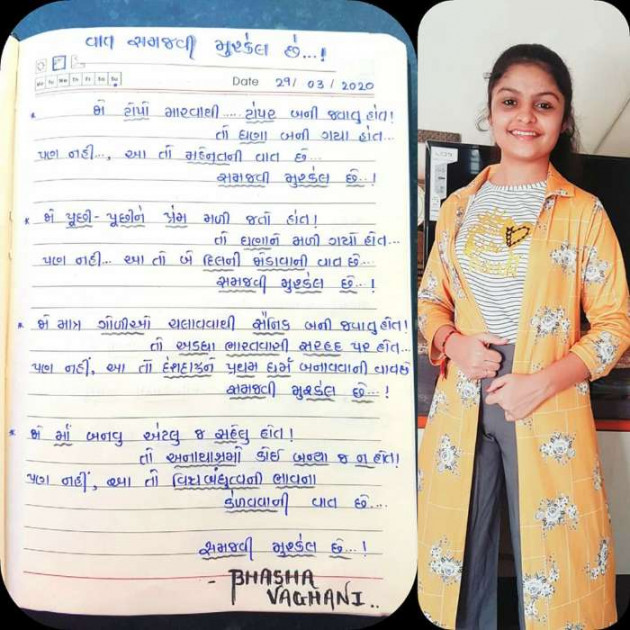 વાત સમજવી મુશ્કેલ છે...!
Date 29/03/2020
* જો ટોપી મારવાથી..... ટોપર બની જવાતુ હોત!
તો ઘણા બની ગયા હોત...
પણ નહીં..., આ તો મહેનતની વાત છે...
સમજવી મુશ્કેલ છે...!
* જો પૂછી-પૂછીને પ્રેમ મળી જતો હોત!
તો ઘણાને મળી ગયો હોત...
પણ નહીં... આ તો બે દિલની જોડાવાની વાત છે...
સમજવી મુશ્કેલ છે...!
* જો માત્ર ગોળીઓ ચલાવવાથી સૈનિક બની જવાતુ હોત!
તો અડધા ભારતવાસી સરહદ પર હોત...
પણ નહીં, આ તો દેશદાઝને પ્રથમ ધર્મ બનાવવાની વાત છે
સમજવી મુશ્કેલ છે...!
* જો માઁ બનવુ એટલુ જ સહેલુ હોત!
તો અનાથાશ્રમો કોઈ બન્યા જ ન હોત!
પણ નહીં, આ તો વિશ્વબંધુત્વની ભાવના
કેળવવાની વાત છે....
સમજવી મુશ્કેલ છે...!
- BHASHA
VAGHANI..